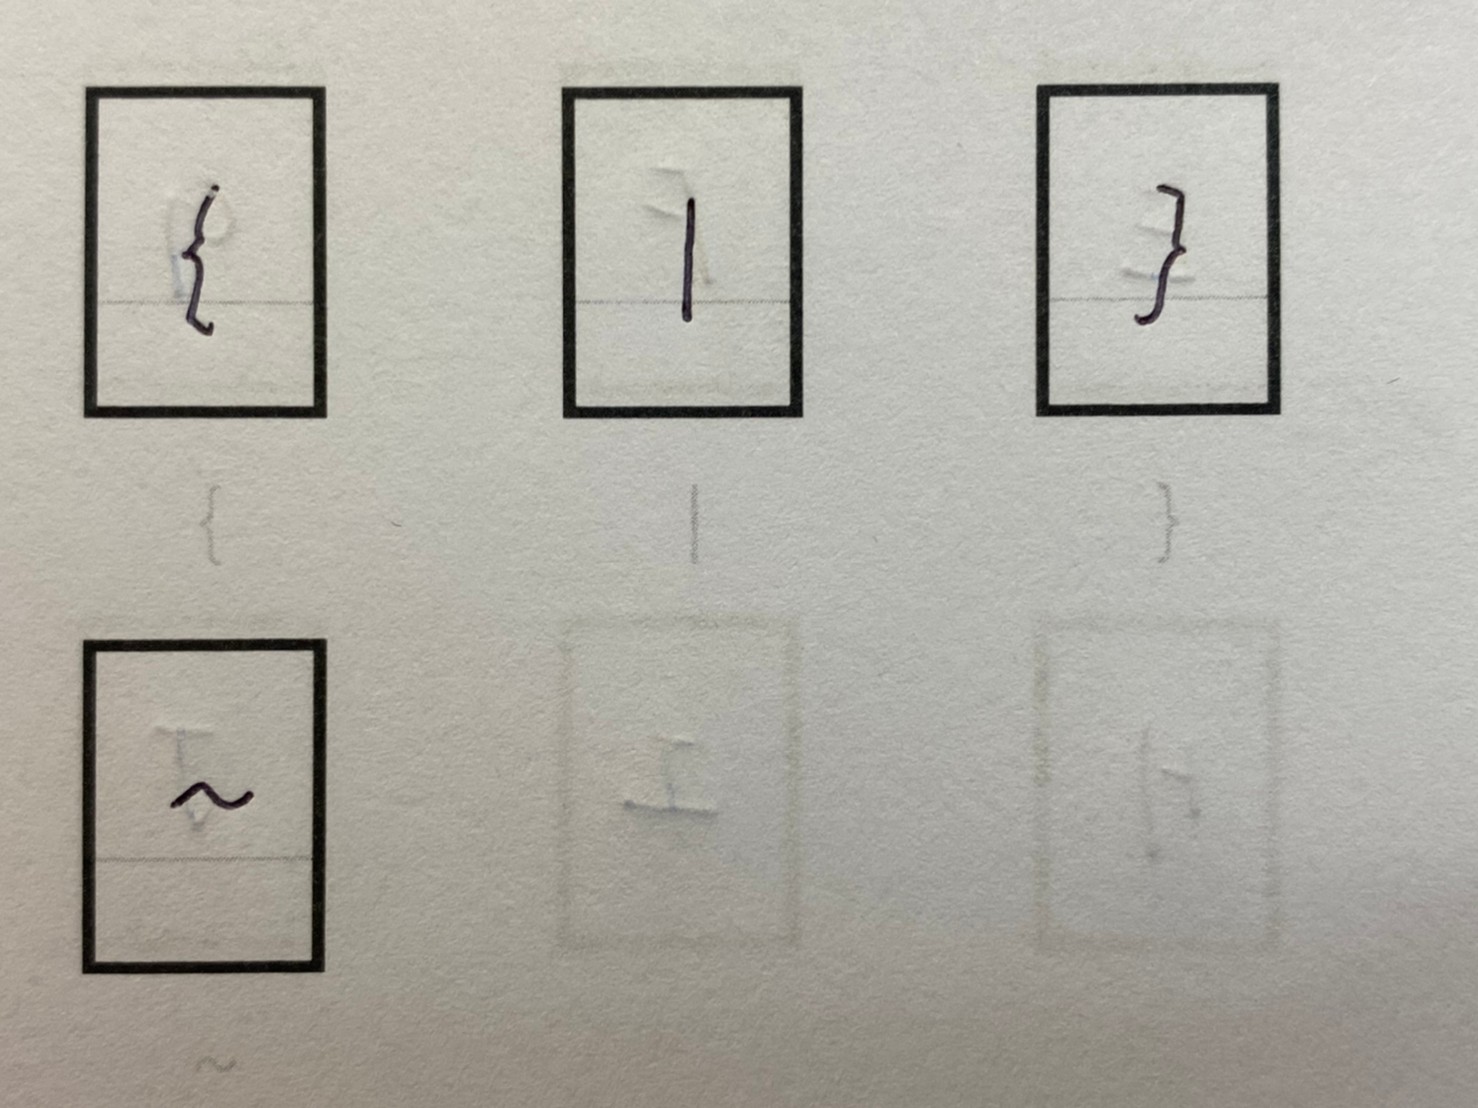 { | }
{ | }
~
~